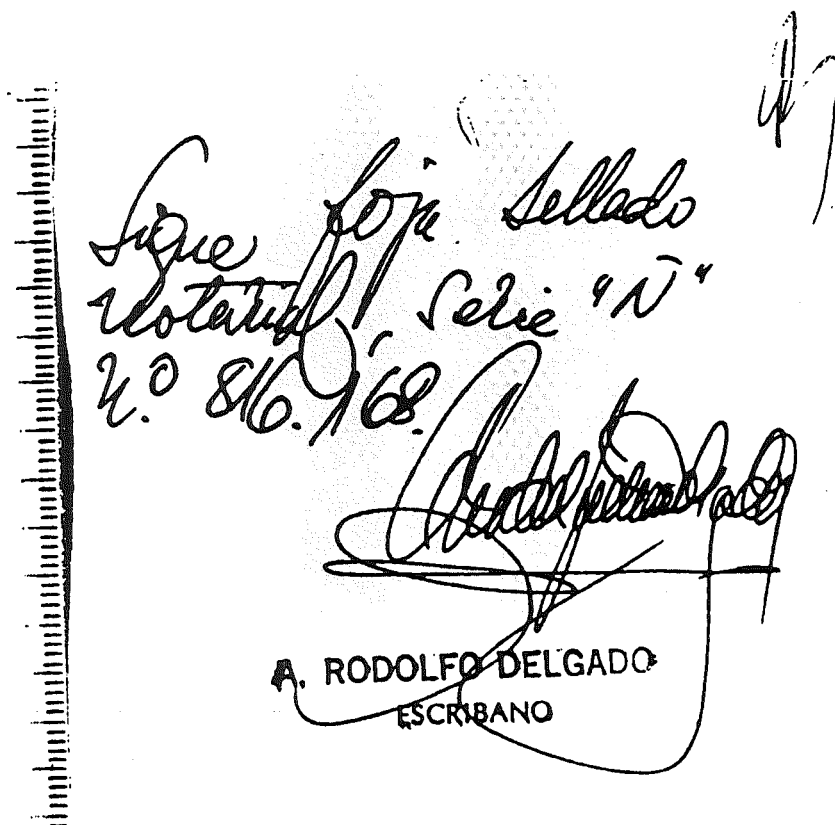 Sigue foja Sellado
Notarial, Serie "Ñ"
N.º 816.168.
A. RODOLFO DELGADO
ESCRIBANO